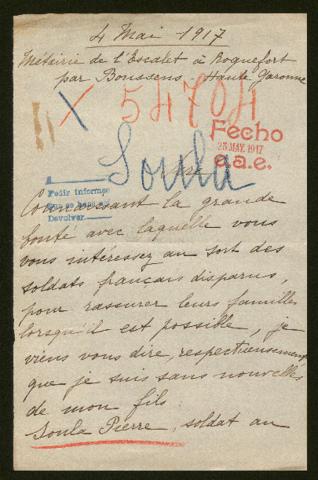 4 Mai 1917
Métairie de l'Escalet à Roquefort
par Boussens - Haute Garonne
X 54704
Fecho
25 MAY. 1917
e.a.e.
Soula
Pedir informes
Devolver
Connaissant la grande
bonté avec laquelle vous
vous intéressez au sort des
soldats français disparus,
pour rassurer leurs familles
lorsqu'il est possible, je
viens vous dire, respectueusement
que je suis sans nouvelles
de mon fils
Soula Pierre, soldat au